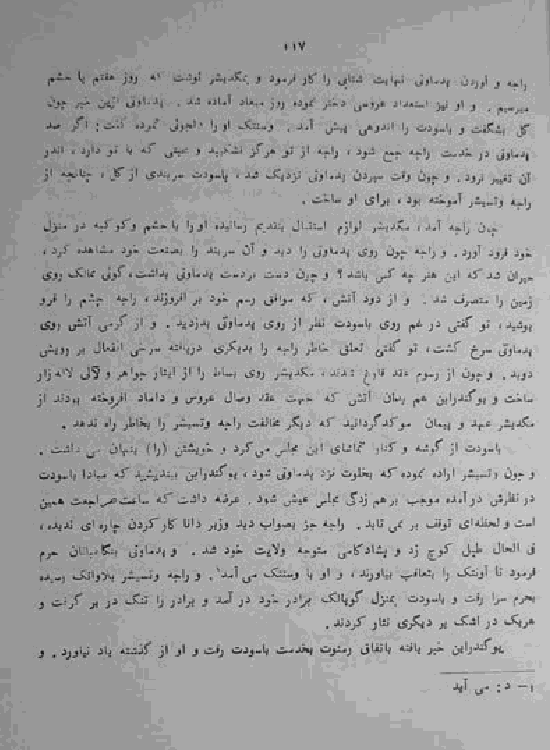 ۱۱۷
راجه و اوردن پدماوتی نهایت شتابی را کار فرمود و بمگدیشر نوشت که روز هفتم با حشم
میرسیم . و او نیز استعداد عروسی دختر نموده روز میعاد آماده شد . پدماوتی ازین خبر چون
گل بشگفت و باسودت را اندوهی پیش آمد . وسنتک او را دلجوئی نموده گفت : اگر صد
پدماوتی در خدمت راجه جمع شود ، راجه از تو هرگز نشکیبد و عشقی که با تو دارد ، اندر
آن تغییر نرود . و چون وقت سپردن پدماوتی نزدیک شد ، باسودت سربندی از گل ، چنانچه از
راجه وتسیشر آموخته بود ، برای او ساخت .
چون راجه آمد ، مگدیشر لوازم استقبال بتقدیم رسانیده او را با حشم و کوکبه در منزل
خود فرود آورد . و راجه چون روی پدماوتی را دید و آن سربند را بصنعت خود مشاهده کرد ،
حیران شد که این هنر چه کس باشد ؟ و چون دست بردست پدماوتی بداشت ، گوئی ممالک روی
زمین را متصرف شد . و از دود آتش ، که موافق رسم خود بر افروزند ، راجه چشم را فرو
پوشید ، تو گفتی در غم روی باسودت نظر از روی پدماوتی بدزدید . و از گرمی آتش روی
پدماوتی سرخ گشت ، تو گفتی تعلق خاطر راجه را بدیگری دریافته سرخی انفعال بر رویش
دوید . و چون از رسوم عقد فارغ شدند ، مگدیشر روی بساط را از ایثار جواهر و لآلی لاله زار
ساخت و یوگندراین هم بدان آتش که جهت عقد وصال عروس و داماد افروخته بودند از
مگدیشر عهد و پیمان موکد گردانید که دیگر مخالفت راجه وتسیشر را بخاطر راه ندهد .
باسودت از گوشه و کنار تماشای این مجلس می کرد و خویشتن (را) پنهان می داشت .
و چون وتسیشر اراده نموده که بخلوت نزد پدماوتی شود ، یوگندراین بیندیشید که مبادا باسودت
در نظرش در آمده موجب برهم زدگی مجلس عیش شود . عرضه داشت که ساعت مراجعت همین
است و لحظه ای توقف بر نمی تابد . راجه جز بصواب دید وزیر دانا کار کردن چاره ای ندیده ،
فی الحال طبل کوچ زد و بشادکامی متوجه ولایت خود شد . و پدماوتی بنگاهبانان حرم
فرمود تا آونتک را بتعاقب بیاورند ، و او با وسنتک می آمد¹ . و راجه وتسیشر بلاوانک رسیده
بحرم سرا رفت و باسودت بمنزل گوپالک برادر خود در آمد و برادر را تنگ در بر گرفت و
هریک در اشک بر دیگری نثار کردند .
یوگندراین خبر یافته باتفاق وسنوت بخدمت باسودت رفت و او از گذشته یاد نیاورد . و
۱- د : می آید